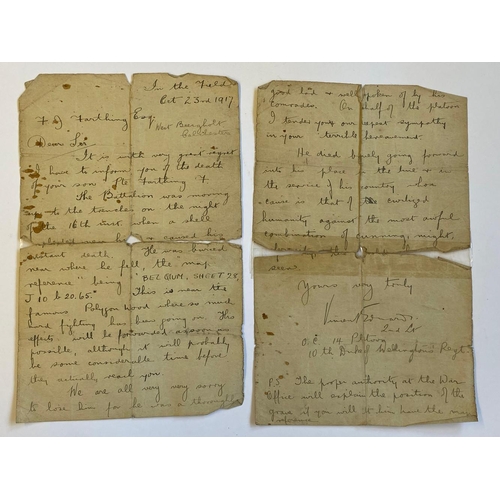 In the Field
Oct 23rd 1917
Farthing Esq.
West Bergholt
Colchester
Dear Sir
It is with very great regret
I have to inform you of the death
of your son Pte Farthing
The Battalion was moving
up to the trenches on the night
of the 16th inst when a shell
exploded near he caused his
instant death. He was buried
near where he fell the map
reference being "BELGIUM, SHEET 28,
J 10 b 20.65." This is near the
famous Polygon Wood where so much
hard fighting has been going on. His
effects will be forwarded as soon as
possible, although it will probably
be some considerable time before
they actually reach you
We are all very very sorry
to lose him for he was a thorough
good lad & well spoken of by his
comrades. On behalf of the platoon
I tender you our deepest sympathy
in your terrible bereavement.
He died bravely going forward
into his place in the line & in
the service of his country whose
cause is that of the civilized
humanity against the most awful
combination of cunning, might,
seen.
Yours very truly
2nd Lt
O.C. 14 Platoon
10th Duke of Wellington's Regt
PS The proper authority at the War
Office will explain the position of the
grave if you will let him have the map
reference